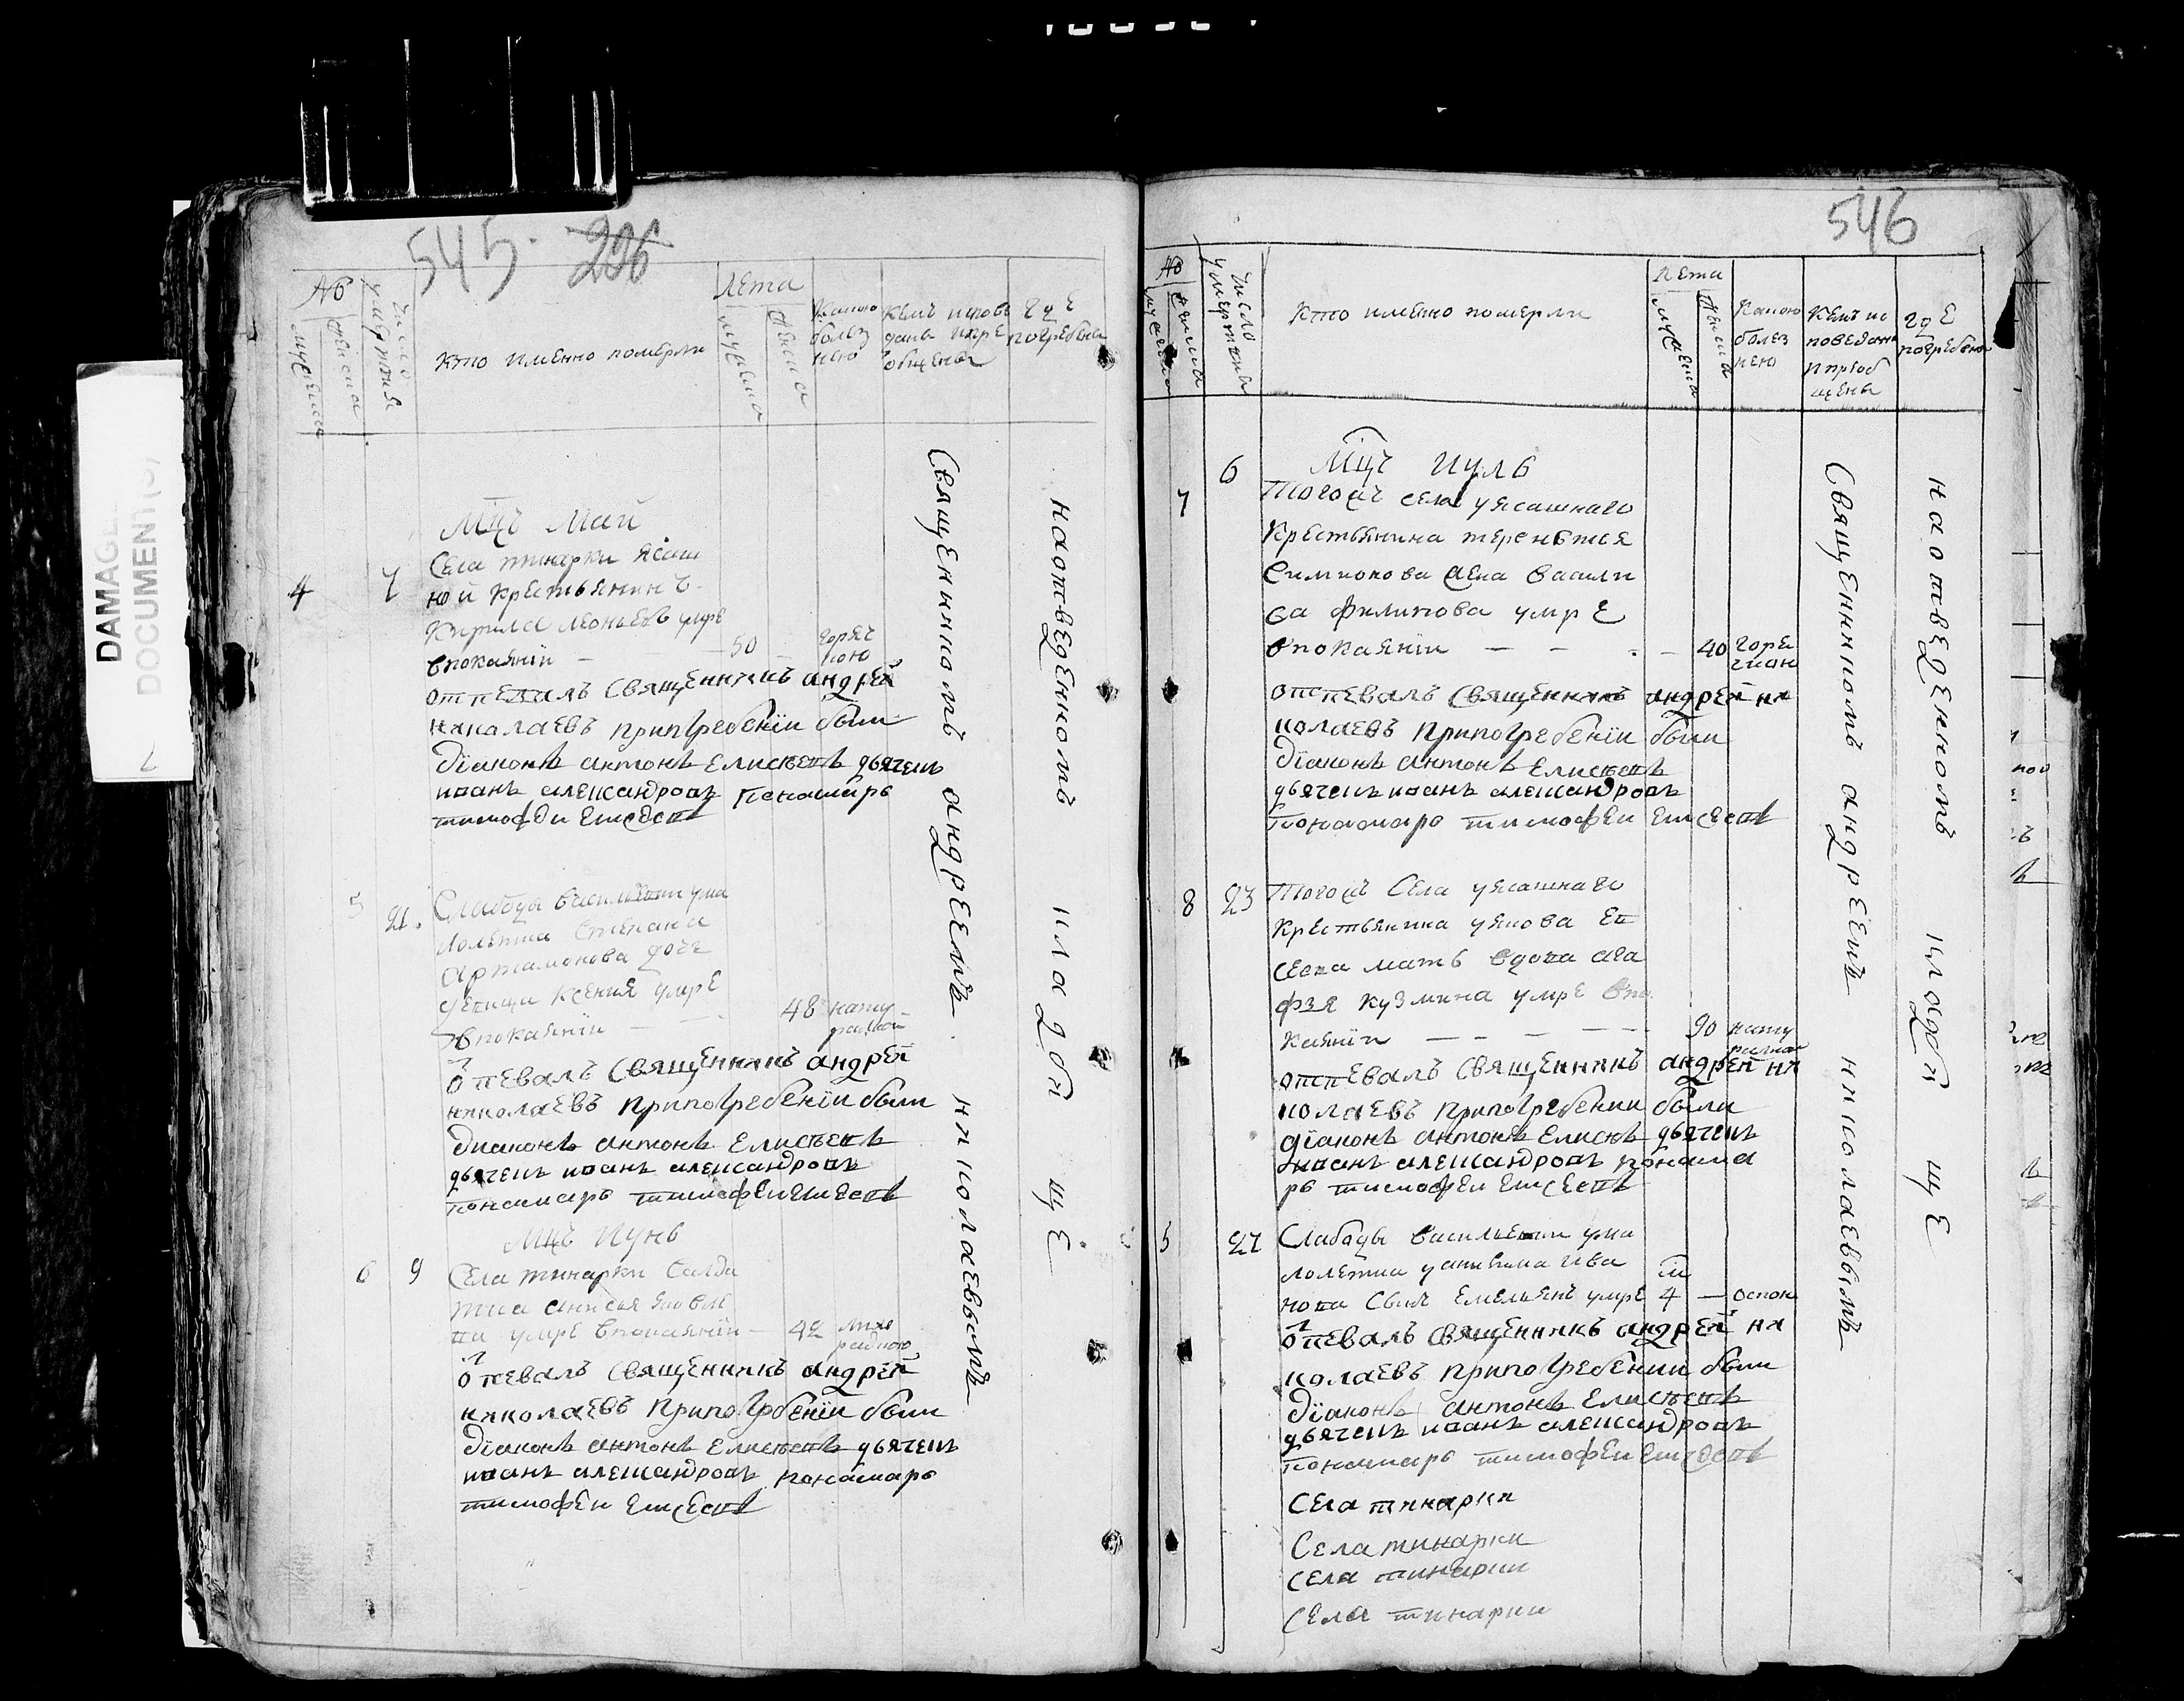 DAMAGED
DOCUMENT(S)
545. 226
№
мужеска
женска
число
умертвия
кто имянно померли
лета
мужеска
женска
какою
болез
нею
кемъ испове
даны и прі
общены
гдѣ
погребены
Мцъ Май
4
7
Села тинарки ясаш
ной крестьянинъ
Кирила леоньевъ умре
впокаяніи — 50 — горяч
кою
отпевалъ священникъ андрей
николаевъ припогребеніи были
діаконъ антонъ Елисеевъ дьячекъ
иванъ александровъ пономарь
тимофеи Елисеевъ
5
21.
Слабоды васильевки уна
лолетка Степана
Артамонова дочь
девица ксения умре
впокаяніи — 48 нату
ралною
опевалъ священникъ андрей
николаевъ припогребеніи были
диаконъ антонъ Елисеевъ
дьячекъ иванъ александровъ
пономарь тимофеи Елисеевъ
Мцъ Иунь
6
9
Села тинарки салда
тка анисья яковле
ва умре впокаяніи — 42 лихо
радкою
опевалъ священникъ андрей
николаевъ припогребеніи были
діаконъ антонъ Елисеевъ дьячекъ
иванъ александровъ пономарь
тимофеи Елисеевъ
Священникомъ андреемъ николаевымъ
наотведенномъ кладбищѣ
546
№
мужеска
женска
число
умертвы
кто имено померли
лета
мужеска
женска
какою
болез
нею
кемъ ис
поведаны
и пріоб
щены
гдѣ
погребены
6
Мцъ Иуль
7
Тогожъ села уясашнаго
крестьянина терентья
Симионова жена васили
са филипова умре
впокаяніи — — — 40 горя
чкою
отпевалъ священникъ андрей ни
колаевъ припогребеніи были
діаконъ антонъ Елисеевъ
дьячекъ иванъ александровъ
пономарь тимофеи Елисеевъ
8
23
Тогожъ Села уясашнаго
крестьянина уякова Ев
сеева мать вдова ага
фья кузмина умре впо
каяніи — — — — 90 нату
ралною
отпевалъ священникъ андрей ни
колаевъ припогребении были
діаконъ антонъ Елисевъ дьячекъ
иванъ александровъ понома
рь тимофеи Елисеевъ
5
27
Слабоды васильевки уна
лолетка уаникина ива
нова сынъ Емельянъ умре 4 — оспою
опевалъ священникъ андрей ни
колаевъ припогребении были
діаконъ антонъ Елисеевъ
дьячекъ иванъ александровъ
пономарь тимофеи Елисеевъ
Села тинарки
Села тинарки
Села тинарки
Села тинарки
Священникомъ андреемъ николаевымъ
наотведенномъ кладбищѣ